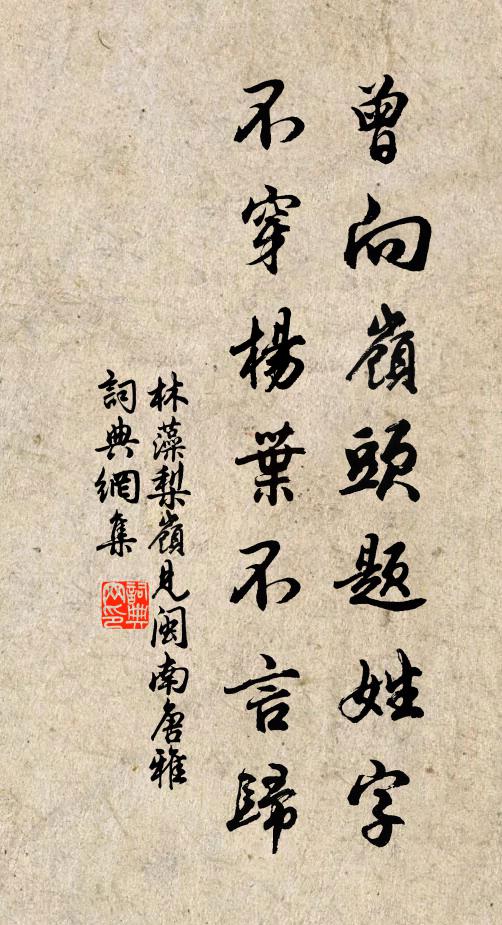 曾向嶺頭題姓字
不穿楊葉不言歸
林藻梨嶺見閩南唐雅
詞典網集
詞典
网印